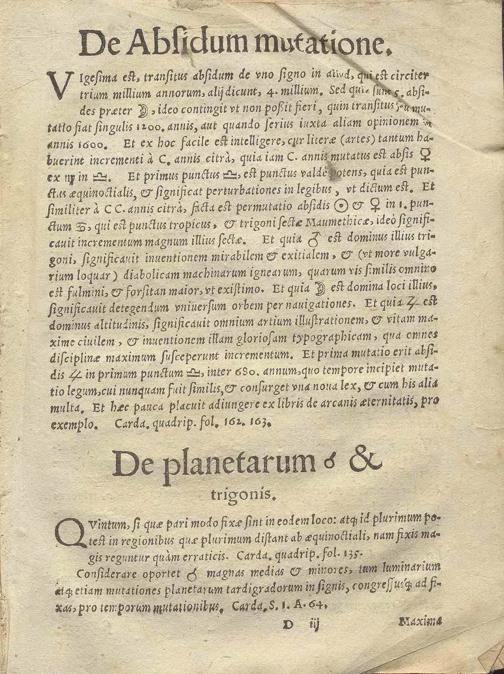 De Absidum mutatione.
VIgesima est, transitus absidum de vno signo in aliud, qui est circiter
trium millium annorum, alij dicunt, 4. millium. Sed quia sunt 5. absi-
des præter ☽, ideo contingit vt non possit fieri, quin transitus seu mu-
tatio fiat singulis 1200. annis, aut quando serius iuxta aliam opinionem
annis 1600. Et ex hoc facile est intelligere, cur literæ (artes) tantum ha-
buerint incrementi à C. annis citrà, quia iam C. annis mutatus est absis ♀
ex ♍ in ♎. Et primus punctus ♎, est punctus valdè potens, quia est pun-
ctus æquinoctialis, & significat perturbationes in legibus, vt dictum est. Et
similiter à CC. annis citrà, facta est permutatio absidis ☉ & ♀ in 1. pun-
ctum ♋, qui est punctus tropicus, & trigoni sectæ Maumethicæ, ideò signifi-
cauit incrementum magnum illius sectæ. Et quia ♂ est dominus illius tri-
goni, significauit inuentionem mirabilem & exitialem, & (vt more vulga-
rium loquar) diabolicam machinarum ignearum, quarum vis similis omnino
est fulmini, & forsitan maior, vt existimo. Et quia ☽ est domina loci illius,
significauit detegendum vniuersum orbem per nauigationes. Et quia ♃ est
dominus altitudinis, significauit omnium artium illustrationem, & vitam ma-
xime ciuilem, & inuentionem illam gloriosam typographicam, qua omnes
disciplinæ maximum susceperunt incrementum. Et prima mutatio erit absi-
dis ♃ in primum punctum ♎, inter 680. annum, quo tempore incipiet muta-
tio legum, cui nunquam fuit similis, & consurget vna noua lex, & cum his alia
multa. Et hæc pauca placuit adiungere ex libris de arcanis æternitatis, pro
exemplo. Carda. quadrip. fol. 162. 163.
De planetarum ☌ &
trigonis.
QVintum, si quæ pari modo fixæ sint in eodem loco: atq; id plurimum po-
test in regionibus quæ plurimum distant ab æquinoctiali, nam fixis ma-
gis reguntur quàm erraticis. Carda. quadrip. fol. 135.
Considerare oportet ☌ magnas medias & minores, tum luminarium
atq; etiam mutationes planetarum tardigradorum in signis, congressusq; ad fi-
xas, pro temporum mutationibus. Carda. S. 1. A. 64.
D iij Maxima